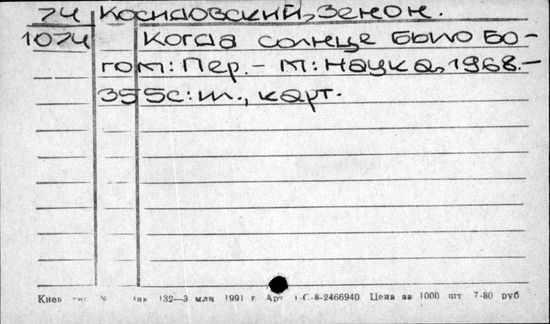 74 Косидовский, Зенон.
1074 Когда солнце было бо-
гом: Пер. – М: Наука, 1968.–
355с: ил., карт.
Киев 132—3 млн 1991 г Арт -С-8-2466940 Цена за 1000 шт 7-80 руб